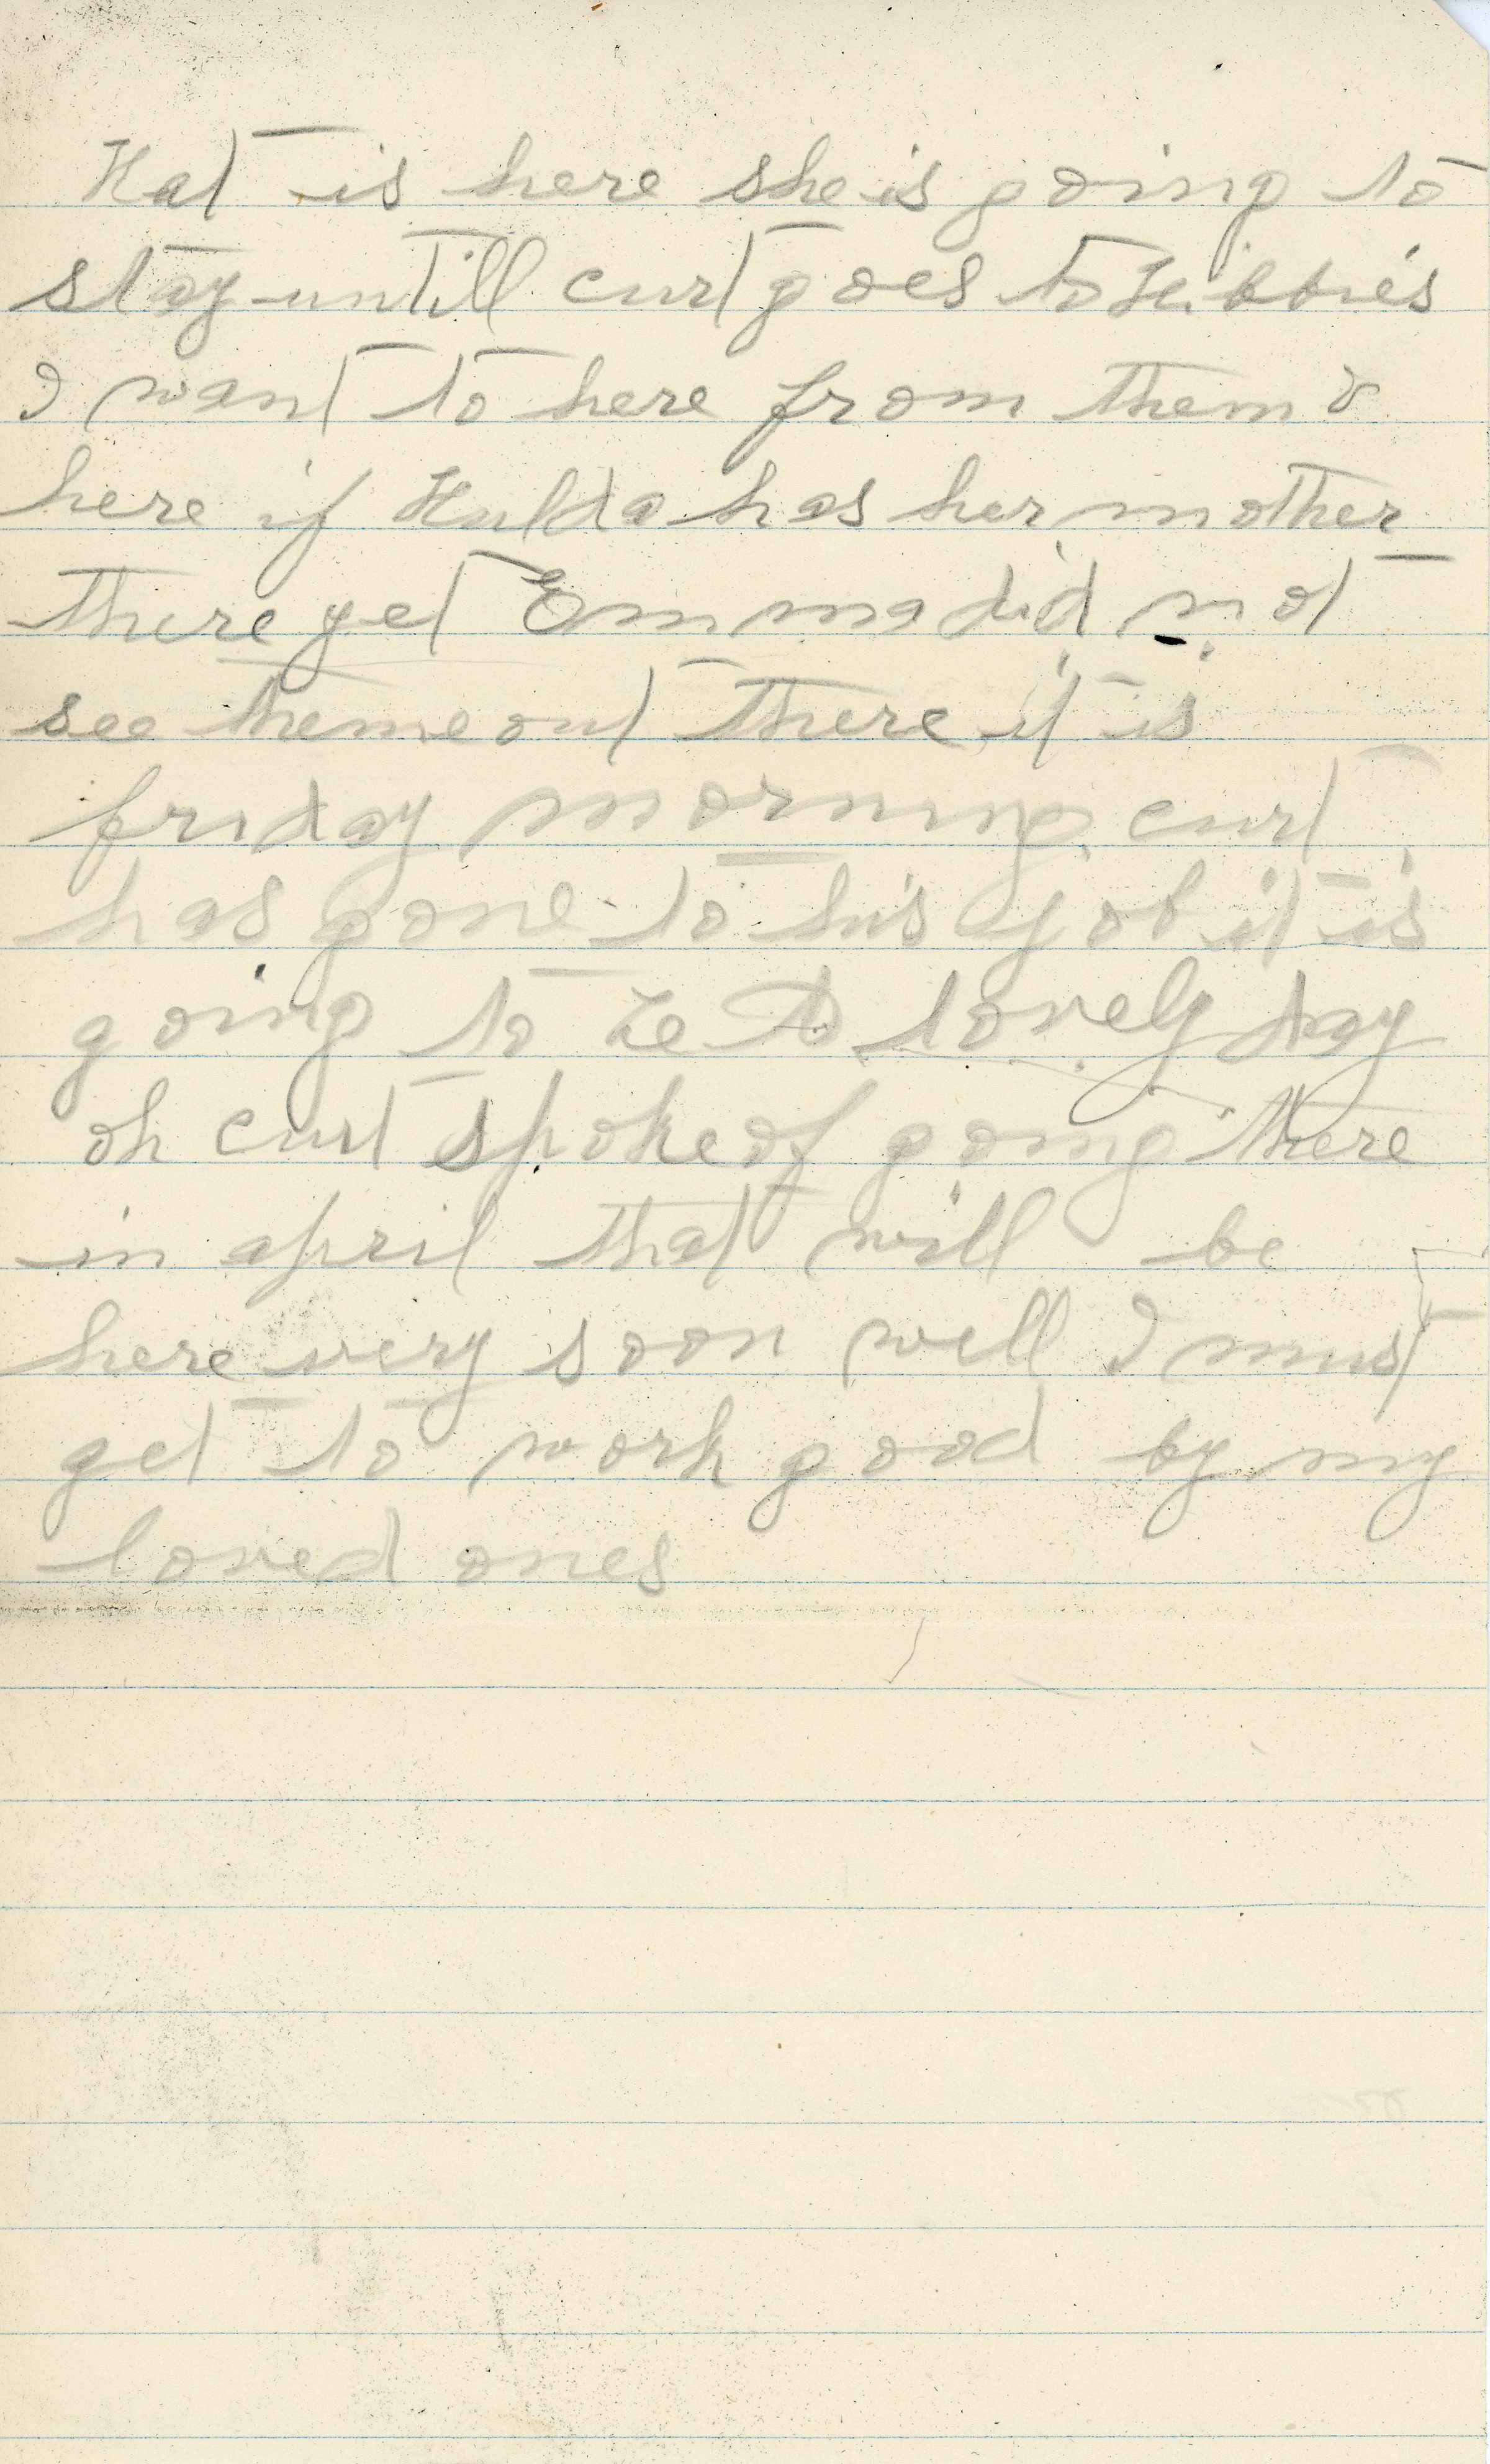 Hat is here she is going to
stay untill curt goes to Hibbies
I want to here from them &
here if Hulda has her mother
there yet Emma did not
see theme out there it is
friday morning curt
has gone to his job it is
going to be a lovely day
oh curt spoke of going there
in april that will be
here very soon well I must
get to work good by my
loved ones